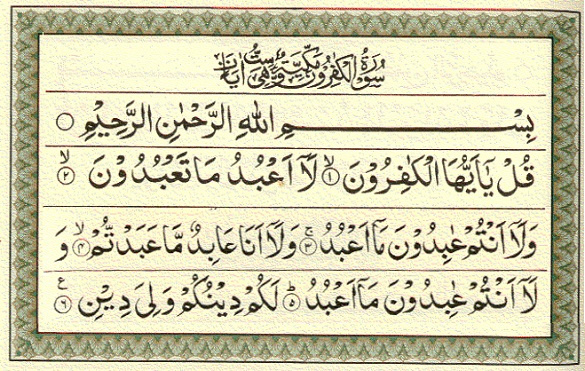 سُوْرَةُ الْكٰفِرُوْنَ مَكِّيَّةٌ وَّهِىَ سِتُّ اٰيَاتٍ
بِسْمِ اللهِ الرَّحْمٰنِ الرَّحِيْمِ ○
قُلْ يٰٓاَيُّهَا الْكٰفِرُوْنَ ۙ﴿۱﴾ لَآ اَعْبُدُ مَا تَعْبُدُوْنَ ۙ﴿۲﴾
وَلَآ اَنْتُمْ عٰبِدُوْنَ مَآ اَعْبُدُ ۚ﴿۳﴾ وَلَآ اَنَا عَابِدٌ مَّا عَبَدْتُّمْ ۙ﴿۴﴾ وَ
لَآ اَنْتُمْ عٰبِدُوْنَ مَآ اَعْبُدُ ﴿۵﴾ لَكُمْ دِيْنُكُمْ وَلِىَ دِيْنِ ﴿۶﴾ ع